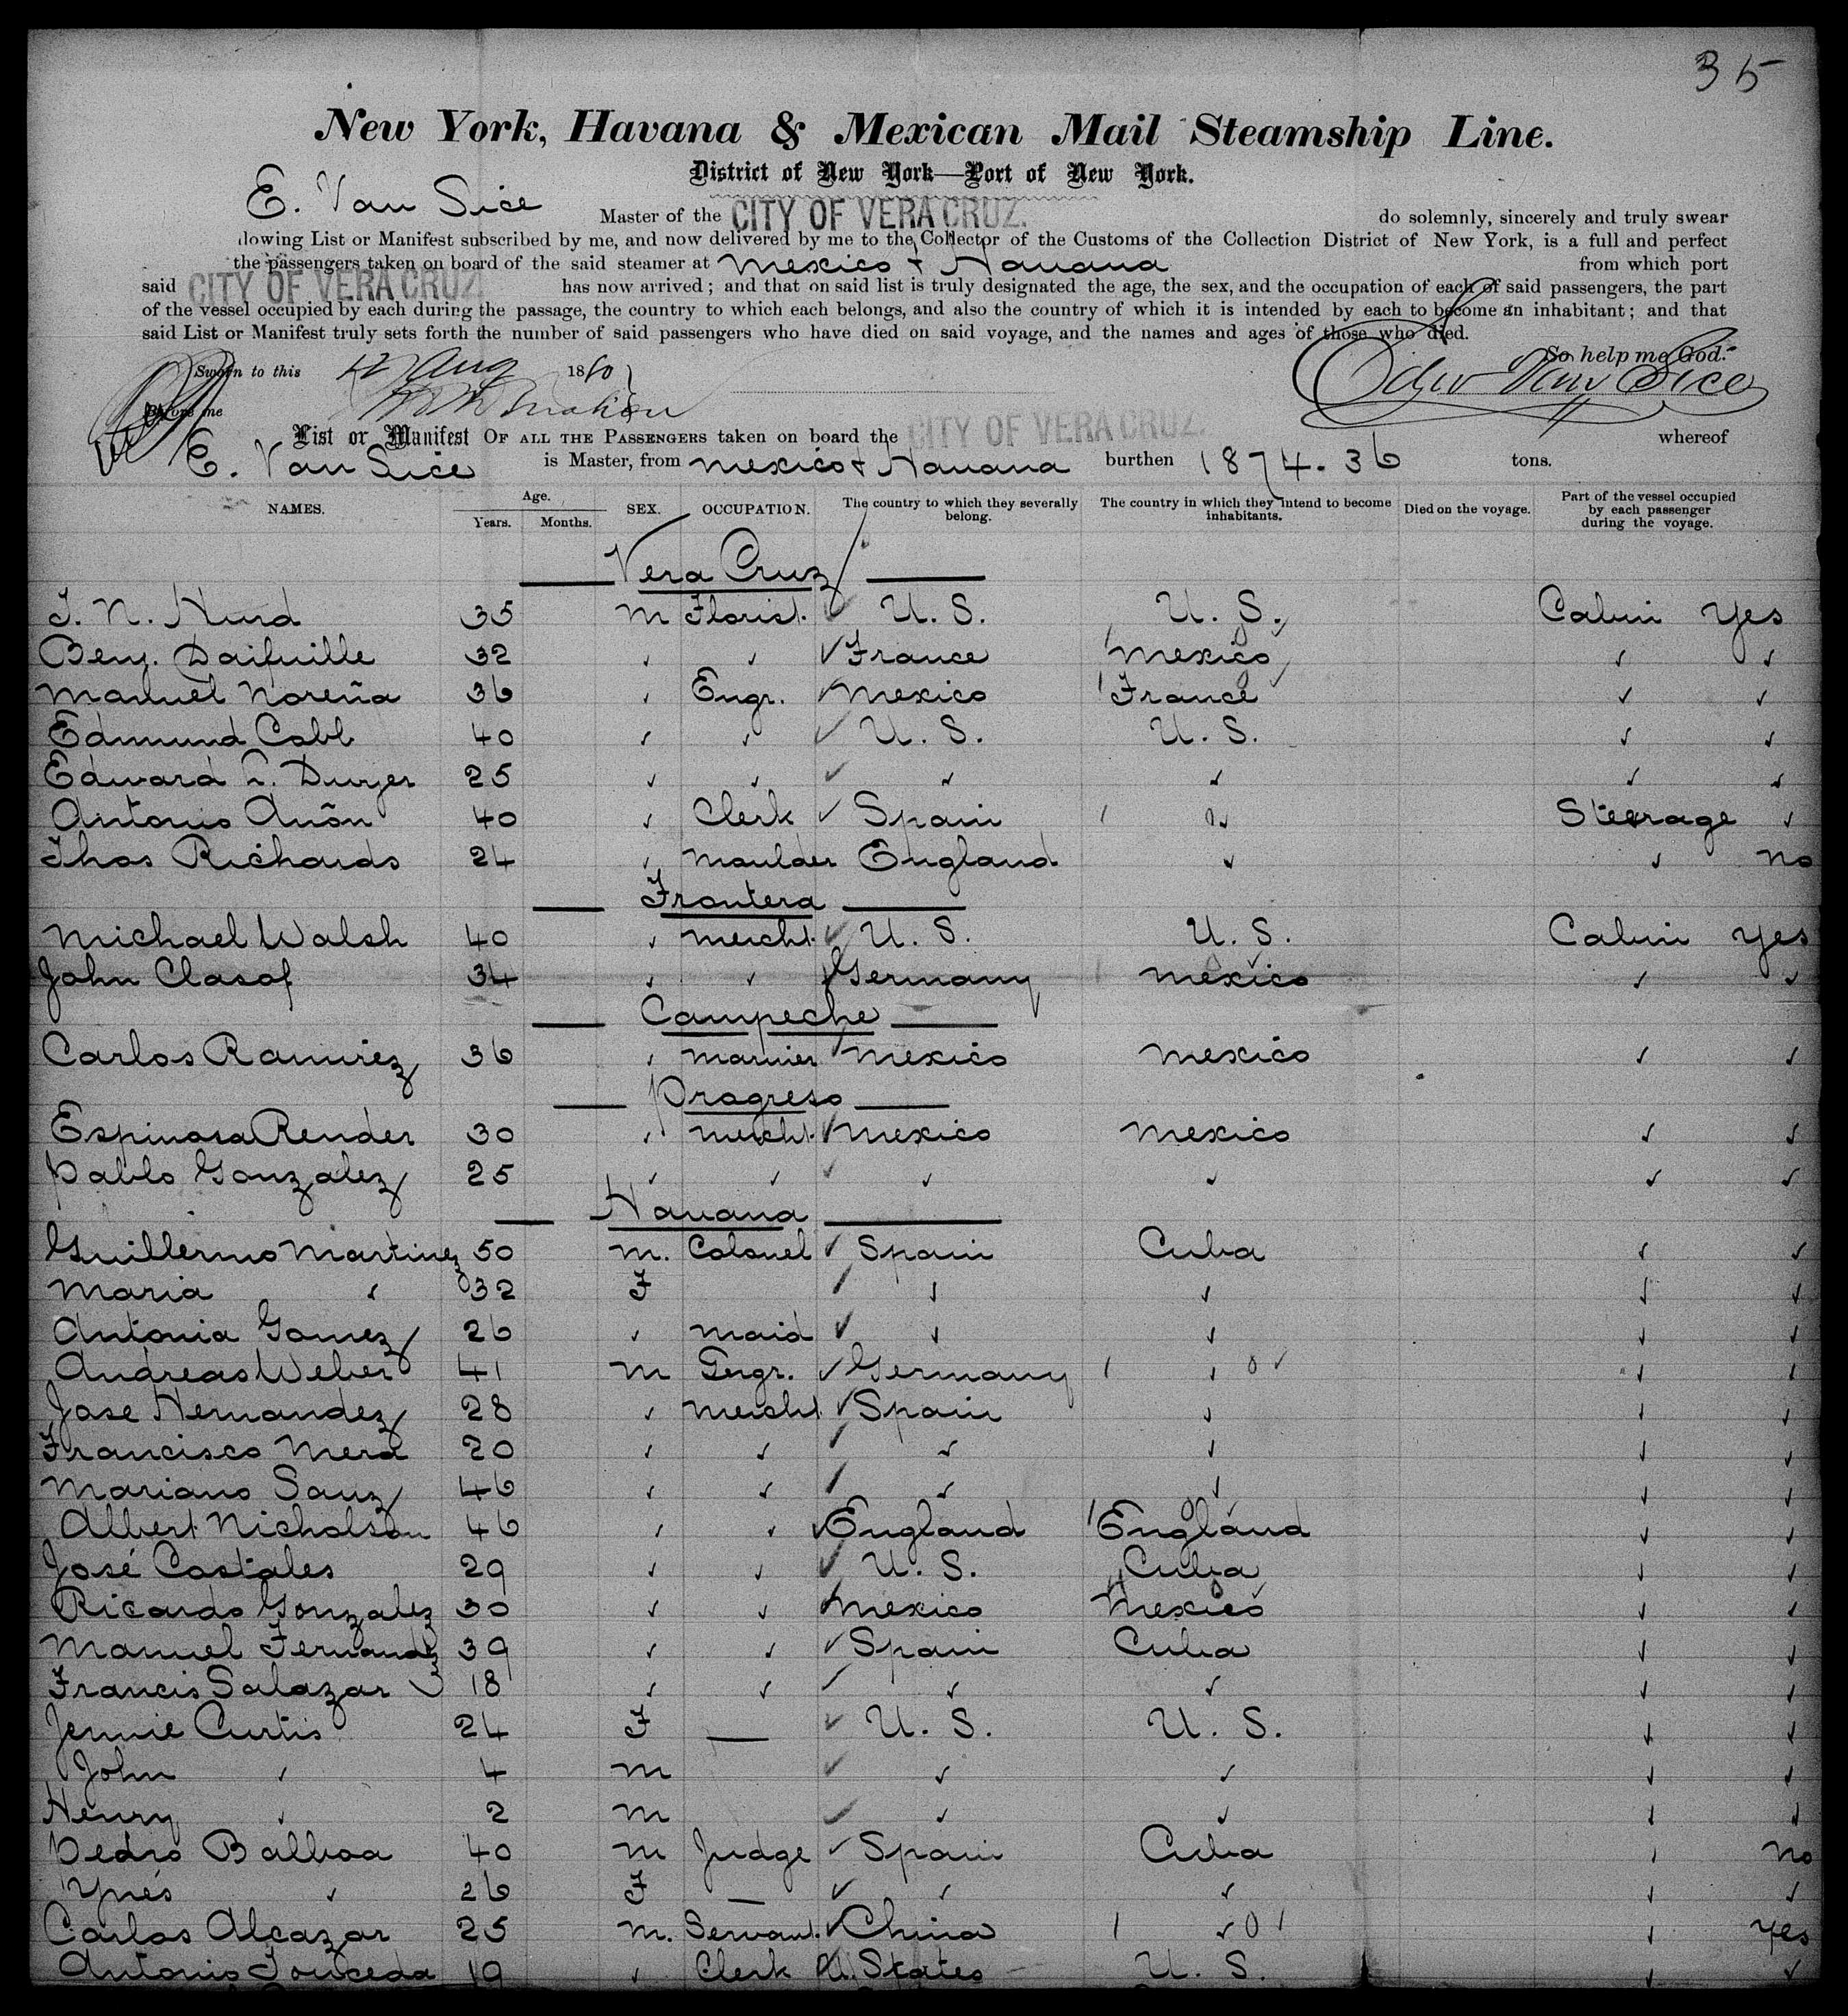 35
New York, Havana & Mexican Mail Steamship Line.
District of New York—Port of New York.
E. Van Sice Master of the CITY OF VERA CRUZ. do solemnly, sincerely and truly swear
llowing List or Manifest subscribed by me, and now delivered by me to the Collector of the Customs of the Collection District of New York, is a full and perfect
the passengers taken on board of the said steamer at Mexico + Havana from which port
said CITY OF VERA CRUZ has now arrived; and that on said list is truly designated the age, the sex, and the occupation of each of said passengers, the part
of the vessel occupied by each during the passage, the country to which each belongs, and also the country of which it is intended by each to become an inhabitant; and that
said List or Manifest truly sets forth the number of said passengers who have died on said voyage, and the names and ages of those who died.
So help me God.
Sworn to this 12 Aug 1880
Edw Van Sice
Before me
List or Manifest OF ALL THE PASSENGERS taken on board the CITY OF VERA CRUZ. whereof
E. Van Sice is Master, from Mexico + Havana burthen 1874.36 tons.
NAMES. Age. Years. Months. SEX. OCCUPATION. The country to which they severally belong. The country in which they intend to become inhabitants. Died on the voyage. Part of the vessel occupied by each passenger during the voyage.
Vera Cruz
T. N. Hurd 35 M Florist. ✓ U. S. U. S. Cabin Yes
Benj. Daifuille 32 ✓ ✓ ✓ France Mexico ✓ ✓
Manuel Noreña 36 ✓ Engr. ✓ Mexico France ✓ ✓
Edmund Cobb 40 ✓ ✓ ✓ U. S. U. S. ✓ ✓
Edward T. Dwyer 25 ✓ ✓ ✓ ✓ ✓ ✓ ✓
Antonio Añón 40 ✓ Clerk ✓ Spain ✓ Steerage ✓
Thos Richards 24 ✓ Moulder England ✓ ✓ No
Frontera
Michael Walsh 40 ✓ Mercht. ✓ U. S. U. S. Cabin Yes
John Clasof 34 ✓ ✓ ✓ Germany Mexico ✓ ✓
Campeche
Carlos Ramirez 36 ✓ Marnier ✓ Mexico Mexico ✓ ✓
Progreso
Espinosa Render 30 ✓ Mercht. ✓ Mexico Mexico ✓ ✓
Pablo Gonzalez 25 ✓ ✓ ✓ ✓ ✓ ✓ ✓
Havana
Guillermo Martinez 50 M. Colonel ✓ Spain Cuba ✓ ✓
Maria ✓ 32 F ✓ ✓ ✓ ✓ ✓
Antonia Gomez 26 ✓ Maid ✓ ✓ ✓ ✓ ✓
Andreas Weber 41 M Engr. ✓ Germany ✓ ✓ ✓
Jose Hernandez 28 ✓ Mercht ✓ Spain ✓ ✓ ✓
Francisco Mera 20 ✓ ✓ ✓ ✓ ✓ ✓ ✓
Mariano Sanz 46 ✓ ✓ ✓ ✓ ✓ ✓ ✓
Albert Nicholson 46 ✓ ✓ ✓ England England ✓ ✓
José Costales 29 ✓ ✓ ✓ U. S. Cuba ✓ ✓
Ricardo Gonzalez 30 ✓ ✓ ✓ Mexico Mexico ✓ ✓
Manuel Fernandez 39 ✓ ✓ ✓ Spain Cuba ✓ ✓
Francis Salazar 18 ✓ ✓ ✓ ✓ ✓ ✓ ✓
Jennie Curtis 24 F — ✓ U. S. U. S. ✓ ✓
John ✓ 4 M ✓ ✓ ✓ ✓ ✓
Henry ✓ 2 M ✓ ✓ ✓ ✓ ✓
Pedro Balboa 40 M Judge ✓ Spain Cuba ✓ No
Ynés ✓ 26 F — ✓ ✓ ✓ ✓ ✓
Carlos Alcazar 25 M. Servant. ✓ China ✓ ✓ Yes
Antonio Touceda 19 ✓ Clerk ✓ U. States U. S. ✓ ✓